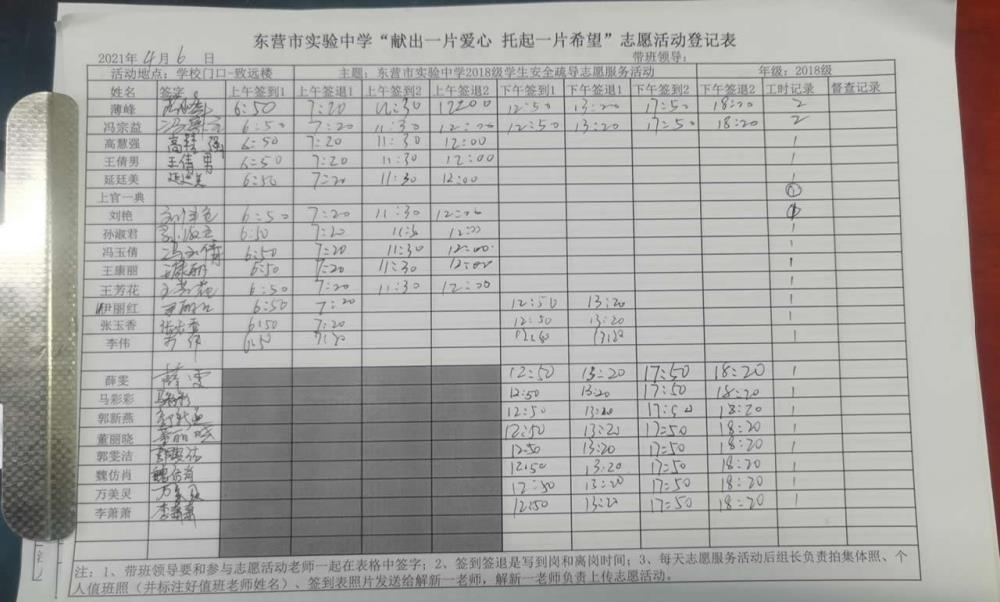 东营市实验中学“献出一片爱心 托起一片希望”志愿活动登记表
2021年 4月 6 日 带班领导:
活动地点: 学校门口-致远楼 主题: 东营市实验中学2018级学生安全疏导志愿服务活动 年级: 2018级
姓名 签字 上午签到1 上午签退1 上午签到2 上午签退2 下午签到1 下午签退1 下午签到2 下午签退2 工时记录 督查记录
薄峰 6:50 7:20 11:30 12:00 12:50 13:20 17:50 18:20 2
冯宗益 6:50 7:20 11:30 12:00 12:50 13:20 17:50 18:20 2
高慧强 高慧强 6:50 7:20 11:30 12:00 1
王倩男 王倩男 6:50 7:20 11:30 12:00 1
延廷美 延廷美 6:50 7:20 11:30 12:00 1
上官一典
刘艳 6:50 7:20 11:30 12:00
孙淑君 6:50 7:20 12:00 1
冯玉倩 冯玉倩 6:50 7:20 11:30 12:00 1
王康丽 王康丽 6:50 7:20 11:30 12:00 1
王芳花 王芳花 6:50 7:20 11:30 12:00 1
伊丽红 6:50 7:20 12:50 13:20 1
张玉香 张玉香 6:50 7:20 12:50 13:20 1
李伟 6:50 7:20 13:20 1
薛雯 薛雯 12:50 13:20 17:50 18:20 1
马彩彩 12:50 13:20 17:50 18:20 1
郭新燕 12:50 13:20 17:50 18:20 1
董丽晓 董丽晓 12:50 13:20 17:50 18:20 1
郭雯洁 12:50 13:20 17:50 18:20 1
魏仿肖 魏仿肖 12:50 13:20 17:50 18:20 1
万美灵 万美灵 12:50 13:20 17:50 18:20 1
李萧萧 李萧萧 12:50 13:20 17:50 18:20 1
注: 1、带班领导要和参与志愿活动老师一起在表格中签字; 2、签到签退是写到岗和离岗时间; 3、每天志愿服务活动后组长负责拍集体照、个
人值班照(并标注好值班老师姓名)、签到表照片发送给解新一老师, 解新一老师负责上传志愿活动。